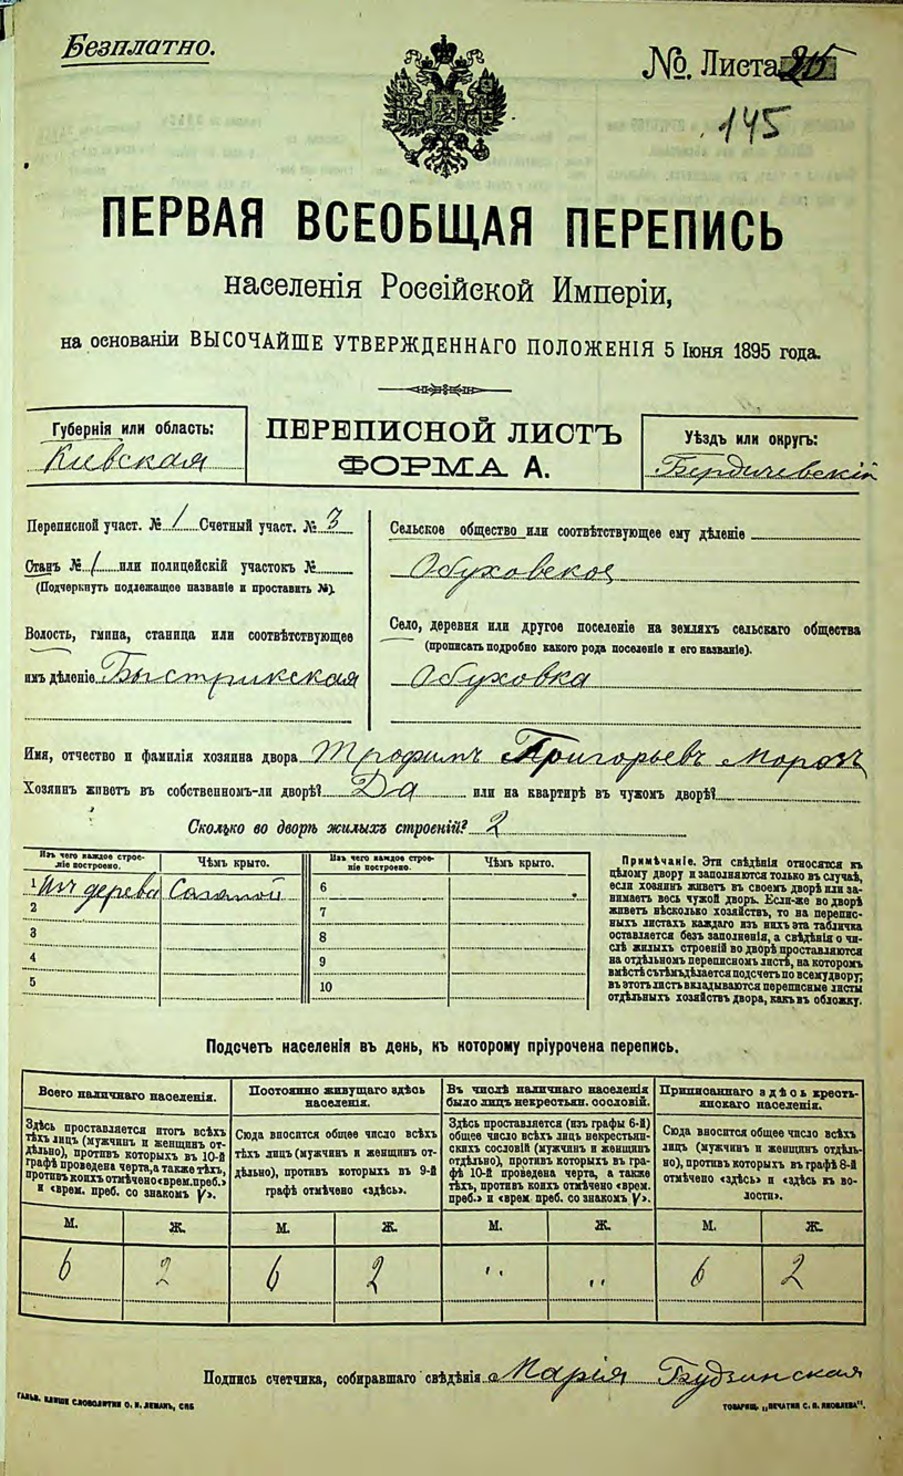 Безплатно.
№. Листа 215
145
ПЕРВАЯ ВСЕОБЩАЯ ПЕРЕПИСЬ
населенія Россійской Имперіи,
на основаніи ВЫСОЧАЙШЕ УТВЕРЖДЕННАГО ПОЛОЖЕНІЯ 5 Іюня 1895 года.
Губернія или область:
Кіевская
ПЕРЕПИСНОЙ ЛИСТЪ
ФОРМА А.
Уѣздъ или округъ:
Бердичевскій
Переписной участ. № 1 Счетный участ. № 3
Станъ № 1 или полицейскій участокъ №
(Подчеркнуть подлежащее названіе и проставить №).
Волость, гмина, станица или соотвѣтствующее
имъ дѣленіе Быстрикская
Сельское общество или соотвѣтствующее ему дѣленіе
Обуховское
Село, деревня или другое поселеніе на земляхъ сельскаго общества
(прописать подробно какого рода поселеніе и его названіе).
Обуховка
Имя, отчество и фамилія хозяина двора Трофимъ Григорьевъ Морозъ
Хозяинъ живетъ въ собственномъ-ли дворѣ? Да или на квартирѣ въ чужомъ дворѣ?
Сколько во дворѣ жилыхъ строеній? 2
Изъ чего каждое строеніе построено.
Чѣмъ крыто.
Изъ чего каждое строеніе построено.
Чѣмъ крыто.
1 Изъ дерева Соломой
2
3
4
5
6
7
8
9
10
Примѣчаніе. Эти свѣдѣнія относятся къ
цѣлому двору и заполняются только въ случаѣ,
если хозяинъ живетъ въ своемъ дворѣ или за-
нимаетъ весь чужой дворъ. Если-же во дворѣ
живетъ нѣсколько хозяйствъ, то на перепис-
ныхъ листахъ каждаго изъ нихъ эта табличка
оставляется безъ заполненія, а свѣдѣнія о чи-
слѣ жилыхъ строеній во дворѣ проставляются
на отдѣльномъ переписномъ листѣ, на которомъ
вмѣстѣ съ тѣмъ дѣлается подсчетъ по всему двору;
въ этотъ листъ вкладываются переписные листы
отдѣльныхъ хозяйствъ двора, какъ въ обложку.
Подсчетъ населенія въ день, къ которому пріурочена перепись.
Всего наличнаго населенія.
Здѣсь проставляется итогъ всѣхъ
тѣхъ лицъ (мужчинъ и женщинъ от-
дѣльно), противъ которыхъ въ 10-й
графѣ проведена черта, а также тѣхъ,
противъ коихъ отмѣчено «врем. преб.»
и «врем. преб. со знакомъ V».
Постоянно живущаго здѣсь
населенія.
Сюда вносится общее число всѣхъ
тѣхъ лицъ (мужчинъ и женщинъ от-
дѣльно), противъ которыхъ въ 9-й
графѣ отмѣчено «здѣсь».
Въ числѣ наличнаго населенія
было лицъ некрестьян. сословій.
Здѣсь проставляется (изъ графы 6-й)
общее число всѣхъ лицъ некрестьян-
скихъ сословій (мужчинъ и женщинъ
отдѣльно), противъ которыхъ въ гра-
фѣ 10-й проведена черта, а также
тѣхъ, противъ коихъ отмѣчено «врем.
преб.» и «врем. преб. со знакомъ V».
Приписаннаго здѣсь кресть-
янскаго населенія.
Сюда вносится общее число всѣхъ
лицъ (мужчинъ и женщинъ отдѣль-
но), противъ которыхъ въ графѣ 8-й
отмѣчено «здѣсь» и «здѣсь къ во-
лости».
М. Ж. М. Ж. М. Ж. М. Ж.
6 2 6 2 " " 6 2
Подпись счетчика, собиравшаго свѣдѣнія Марія Будзинская
ГАЛЬВ. КЛИШЕ СЛОВОЛИТНИ О. И. ЛЕМАНЪ, СПБ
ТОВАРИЩ. „ПЕЧАТНЯ С. П. ЯКОВЛЕВА".